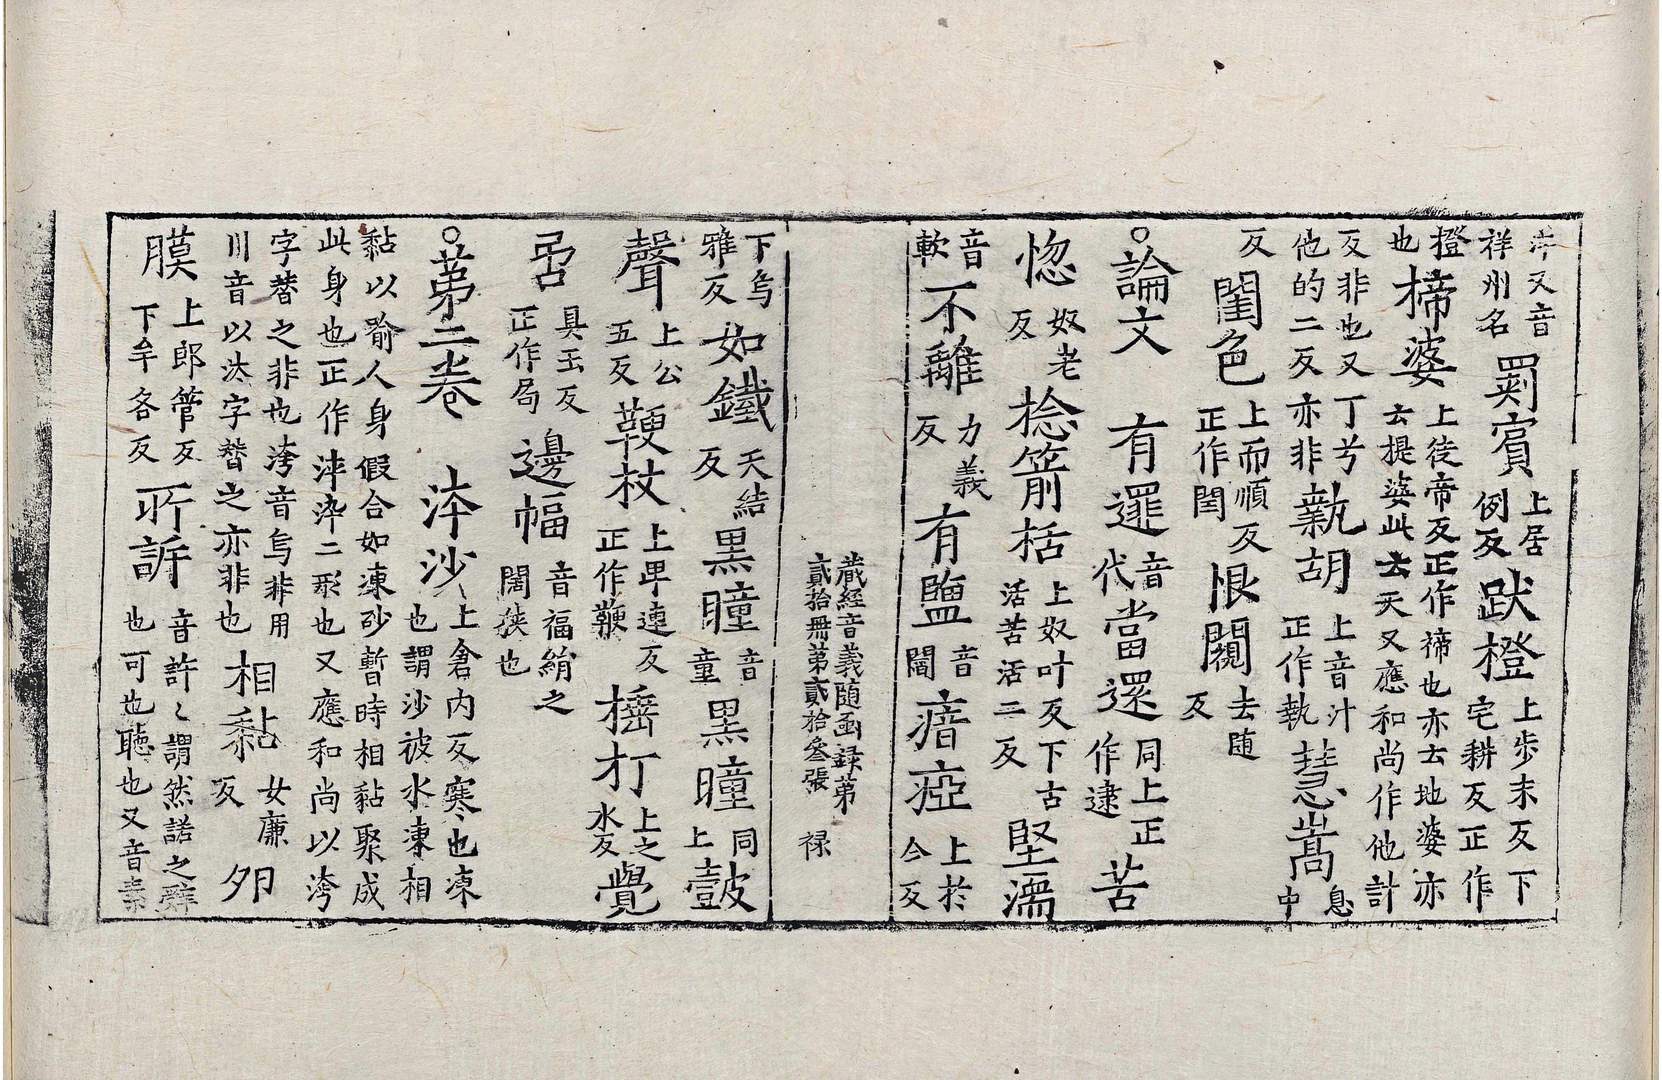 泮又音祥州名罽賓上居例反跋橙上步末反下宅耕反正作
橙也楴婆上徒帝反正作禘也亦云地婆亦云提婆此云天又應和尚作他計
反非也又丁兮他的二反亦非𭺗胡上音汁正作執慧嵩息中
反閨色上而順反正作閏恨閱去随反
○論文 有逻音代當還同上正作逮苦
惚奴老反捻箭栝上奴叶反下古活苦活二反堅濡
音軟不離力義反有鹽音閻瘖瘂上於今反
藏經音義随函録第貳拾冊第貳拾叄張 禄
下烏雅反如鐵天結反黒瞳音童黒曈同上皷
聲上公五反鞕杖上卑連反正作鞭檛打上之水反覺
局具玉反正作局邊幅音福絹之闊狹也
○第二卷 㳃沙上倉内反寒也凍也謂沙被水凍相
黏以喻人身假合如凍砂暫時相黏聚成此身也正作淬涬二形也又應和尚以洿
字替之非也洿音烏非用川音以汰字替之亦非也相黏女廉反夘
膜上郎管反下牟各反所訴音許〻謂然諾之辤也可也聴也又音素